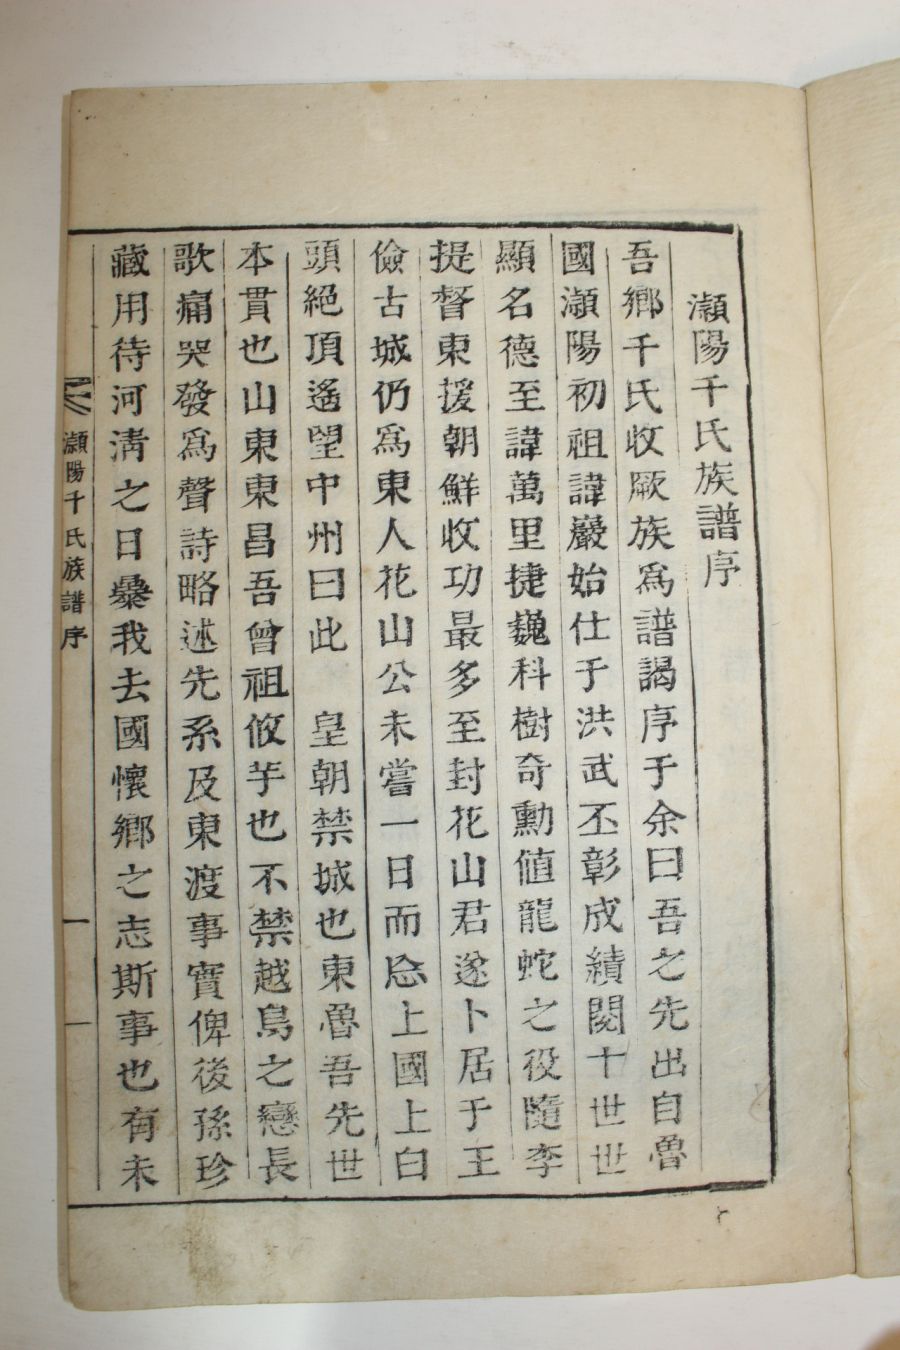 瀕陽千氏族譜序
吾鄉千氏收厥族爲譜謁序于余曰吾之先出自魯
國瀕陽初祖諱巖始仕于洪武丕彰成績閱十世世
顯名德至諱萬里捷巍科樹奇勳値龍蛇之役隨李
提督東援朝鮮收功最多至封花山君遂卜居于王
儉古城仍爲東人花山公未嘗一日而忘上國上白
頭絕頂遙望中州曰此 皇朝禁城也東魯吾先世
本貫也山東東昌吾曾祖攸芋也不禁越鳥之戀長
歌痛哭發爲聲詩略述先系及東渡事實俾後孫珍
藏用待河淸之日曓我去國懷鄉之志斯事也有未
瀕陽千氏族譜序
一